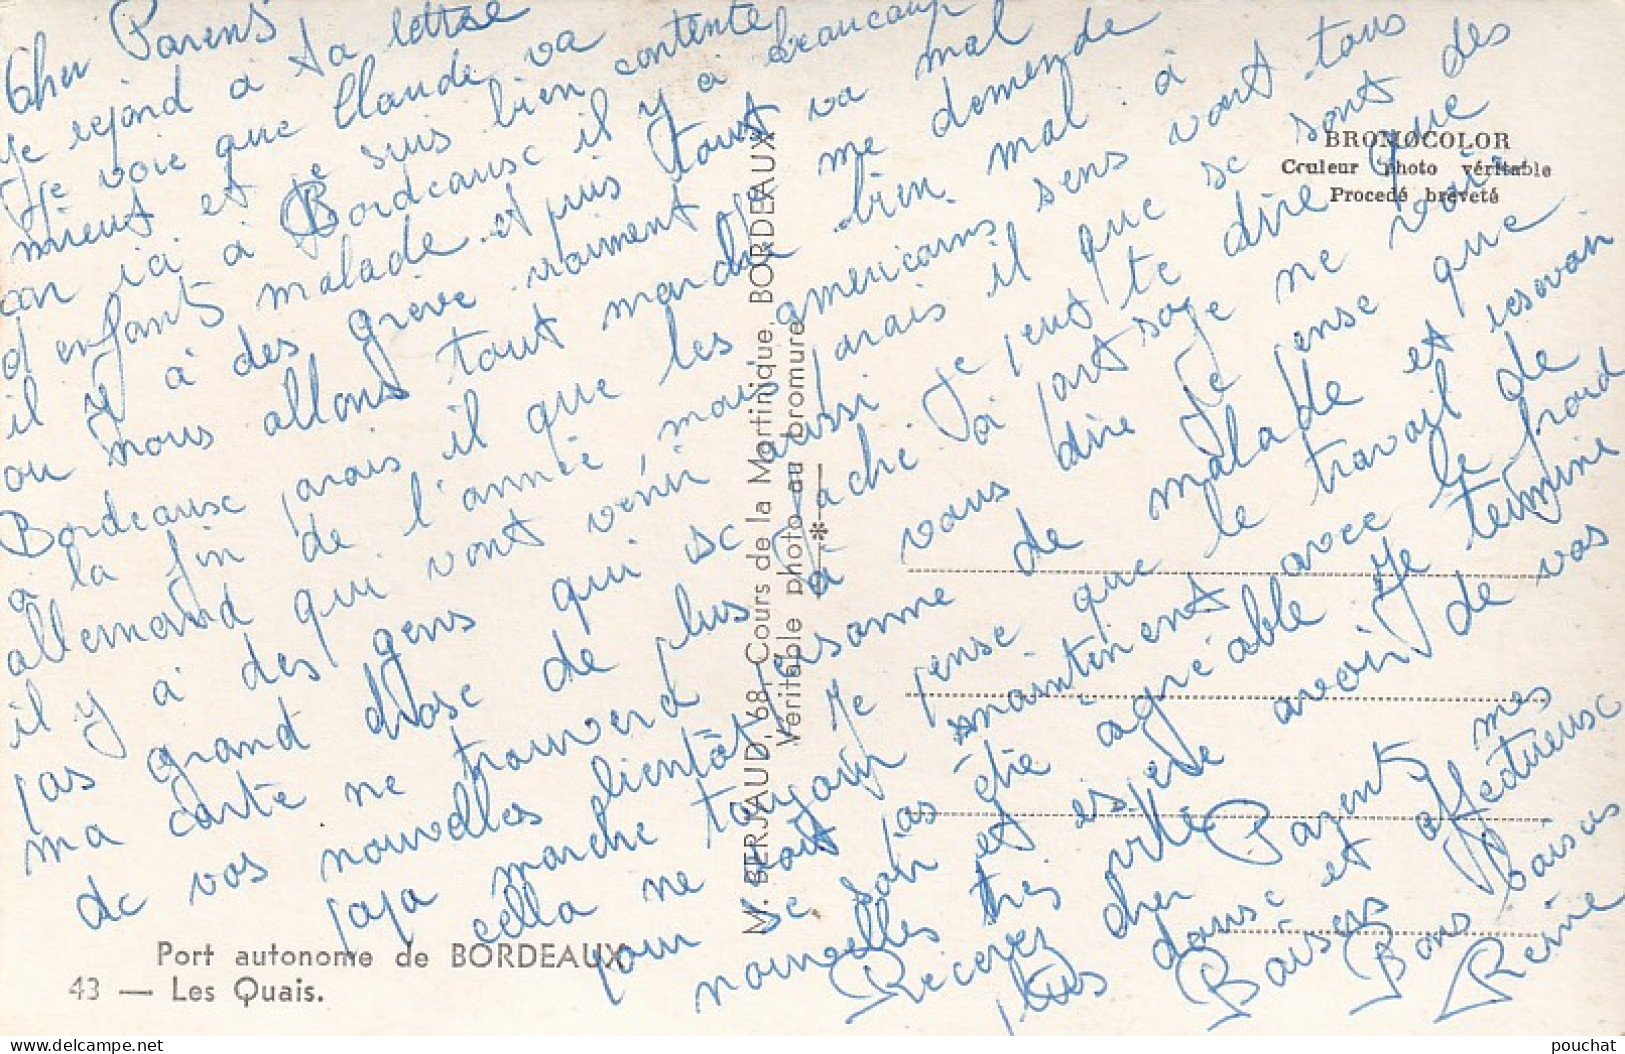 Cher Parens
Je repond à ta lettre
Je voie que Claude va
mieut et je suis bien contente
car ici à Bordeause il y à beaucoup
d'enfants malade et puis tout va mal
il y à des grève vraiment me demende
ou nous allons tout marche bien mal à
Bordeause parais il que les americains sens vont tous
à la fin de l'année, mais parais il que se sont des
allemand qui vont venir aussi je peut te dire que
il y à des gens qui se faché à part sage ne vois
pas grand chose de plus à vous dire Je pense que
ma carte ne trouvera personne de malade et reservoir
de vos nouvelles bientôt Je pense que le travail de
papa marche toujour maintinent avec le froid
cella ne doit pas être agréable Je termine
pour se soir et espère avoir de vos
nouvelles très vite
Recevez cher Parents mes
plus douse et affectueuse
Baisers Bons baisers
Reine
BROMOCOLOR
Couleur photo véritable
Procedé breveté
M. BERJAUD, 68, Cours de la Martinique, BORDEAUX
Veritable photo au bromure
Port autonome de BORDEAUX
43 — Les Quais.
delcampe.net
pouchat